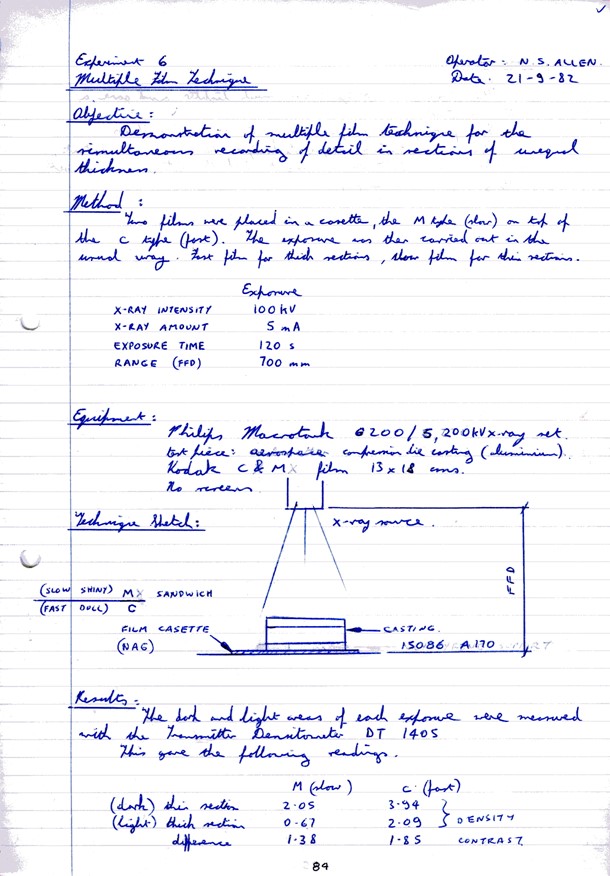 Experiment 6
Operator: N.S. ALLEN.
Multiple Film Technique
Date. 21-9-82
Objective:
Demonstration of multiple film technique for the
simultaneous recording of detail in sections of unequal
thickness.
Method:
Two films were placed in a casette, the M type (slow) on top of
the C type (fast). The exposure was then carried out in the
usual way. Fast film for thick sections, slow film for thin sections.
Exposure
X-RAY INTENSITY 100 kV
X-RAY AMOUNT 5 mA
EXPOSURE TIME 120 s
RANGE (FFD) 700 mm
Equipment:
Philips Macrotank 6200/5, 200kV x-ray set.
test piece: aerospace compression die casting (aluminium).
Kodak C & MX film 13 x 18 cms.
No screens
Technique Sketch:
X-ray source.
FFD
(SLOW SHINY) MX SANDWICH
(FAST DULL) C
FILM CASETTE
(NAG)
CASTING.
15086 A170
Results:
The dark and light areas of each exposure were measured
with the Transmitto Densitometer DT 1405
This gave the following readings.
M (slow) C (fast)
(dark) thin section 2.05 3.94
(light) thick section 0.67 2.09 } DENSITY
difference 1.38 1.85 CONTRAST.
84